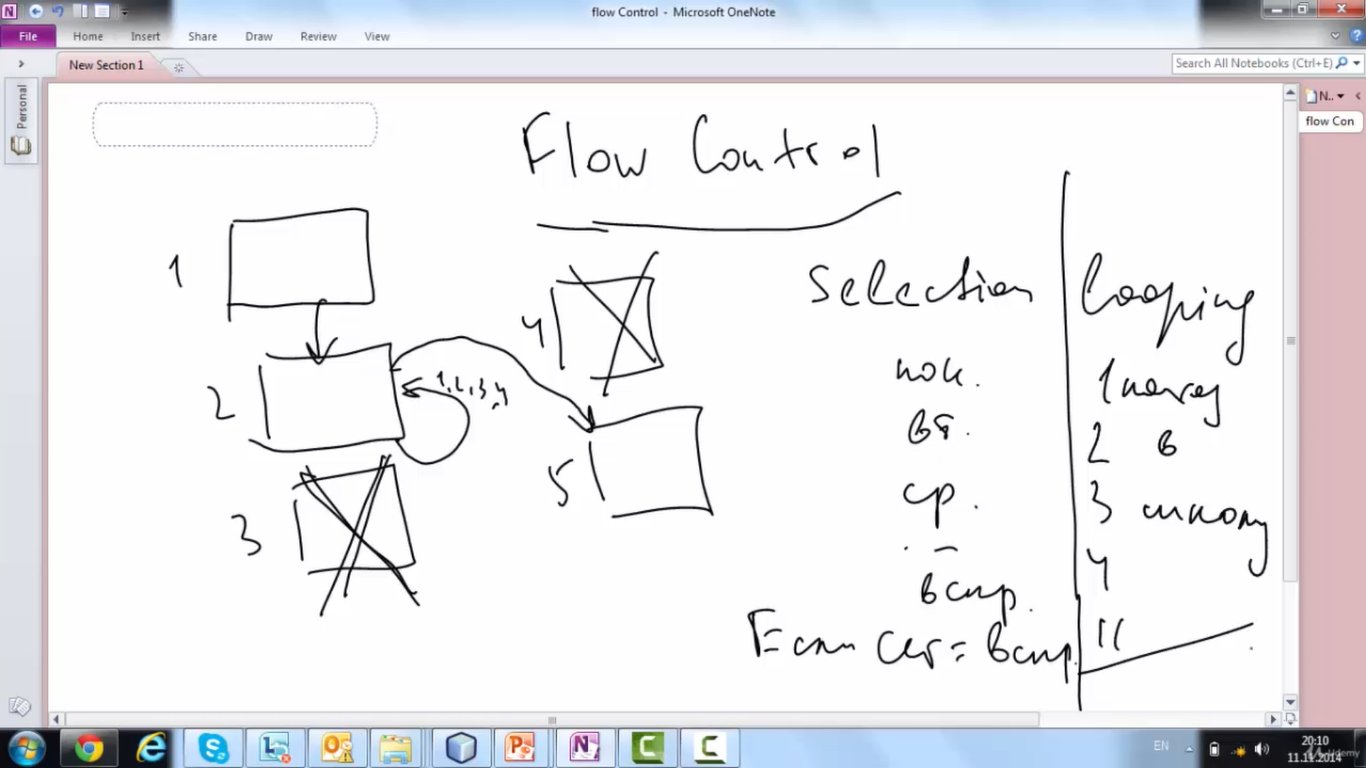 flow Control - Microsoft OneNote
File Home Insert Share Draw Review View
New Section 1
Search All Notebooks (Ctrl+E)
Personal
N..
flow Con
Flow Control
1
2
1,2,3,4
3
4
5
Selection
пон.
вт.
ср.
Если сег = вскр.
Looping
1
2 в
3 школу
4
11
EN
20:10
11.11.2014
Udemy